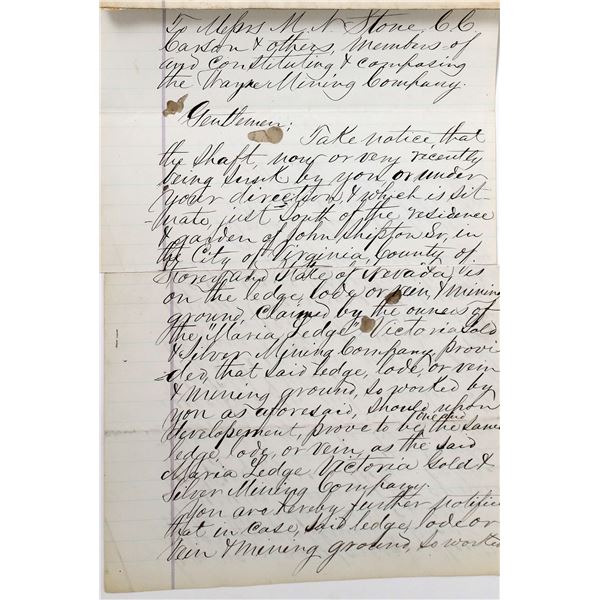 To Messrs M. N. Stone, C. C.
Carson & others, members of
and constituting & composing
the Wayne Mining Company.
Gentlemen;
Take notice that
the shaft, now or very recently
being sunk by you or under
your direction, & which is sit-
-uate just South of the residence
& garden of John Shipton Sr, in
the City of Virginia, County of
Storey and State of Nevada, is
on the ledge, lode or vein, & mining
ground, claimed by the owners of
the "Maria Ledge" Victoria Gold
& Silver Mining Company, provi-
ded, that said ledge, lode, or vein
& mining ground, so worked by
you as aforesaid, should upon
developement, prove to be the one and same
ledge, lode, or vein, as the said
Maria Ledge Victoria Gold &
Silver Mining Company.
You are hereby further notified
that in case, said ledge, lode or
vein & mining ground, so worked